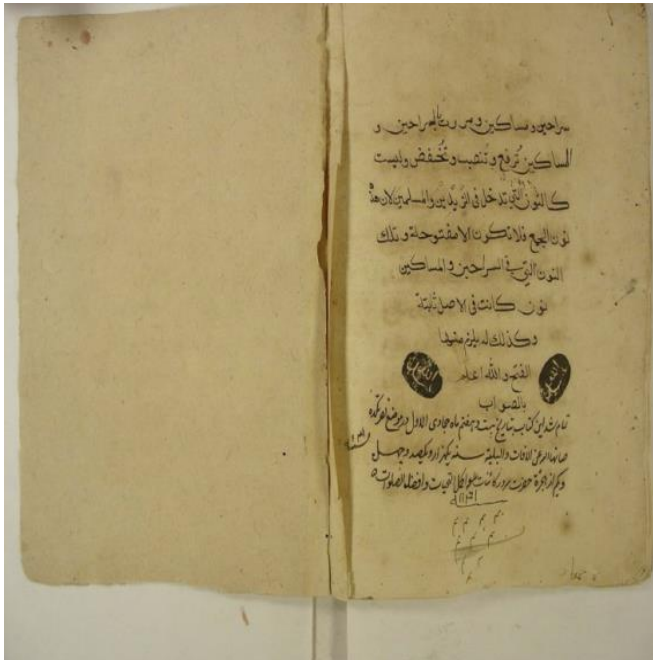 سراحين ومساكين ومررت بالسراحين و
المساكين تُرفع وتُنصب وتُخفض وليست
كالنون الّتي تدخل في الزيدين والمسلمين لان هذه
نون الجمع فلا تكون الا مفتوحة وتلك
النون الّتي في السراحين والمساكين
نون كانت في الاصل ثابتة
وكذلك لم يلزم فيها
الفتح والله اعلم
بالصواب
تمام شد اين كتاب بتاريخ بيست وهفتم ماه جمادى الاول در موضع
صانها الله عن الافات والبلية سنه يكهزار ويكصد وچهل
ويكم از هجرة حضرت سرور كائنات عليه اكمل التحيات وافضل الصلوات
١١٤١
م م م
م م م
م م
م